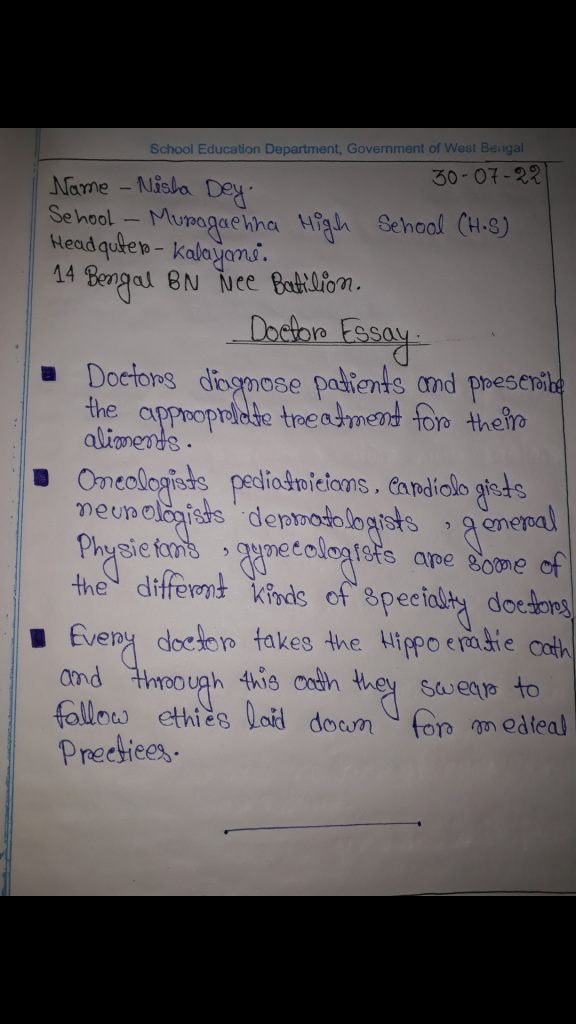 School Education Department, Government of West Bengal
30-07-22
Name - Nisha Dey.
School - Muragachha High School (H.S)
Headquter - Kalayani.
14 Bengal BN Ncc Batilion.
Doctor Essay.
Doctors diagnose patients and prescribe
the appropriate treatment for their
aliments.
Oncologists pediatricians, cardiologists
neurologists dermatologists, general
Physicians, gynecologists are some of
the different kinds of specialty doctors
Every doctor takes the Hippocratic oath
and through this oath they swear to
follow ethics laid down for medical
Prectices.